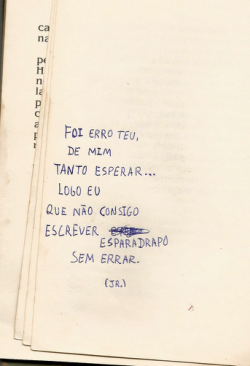 ca
na
pe
H
n
la
p
c
a
p
r
FOI ERRO TEU,
DE MIM
TANTO ESPERAR...
LOGO EU
QUE NÃO CONSIGO
ESCREVER
ESPARADRAPO
SEM ERRAR.
(JR.)